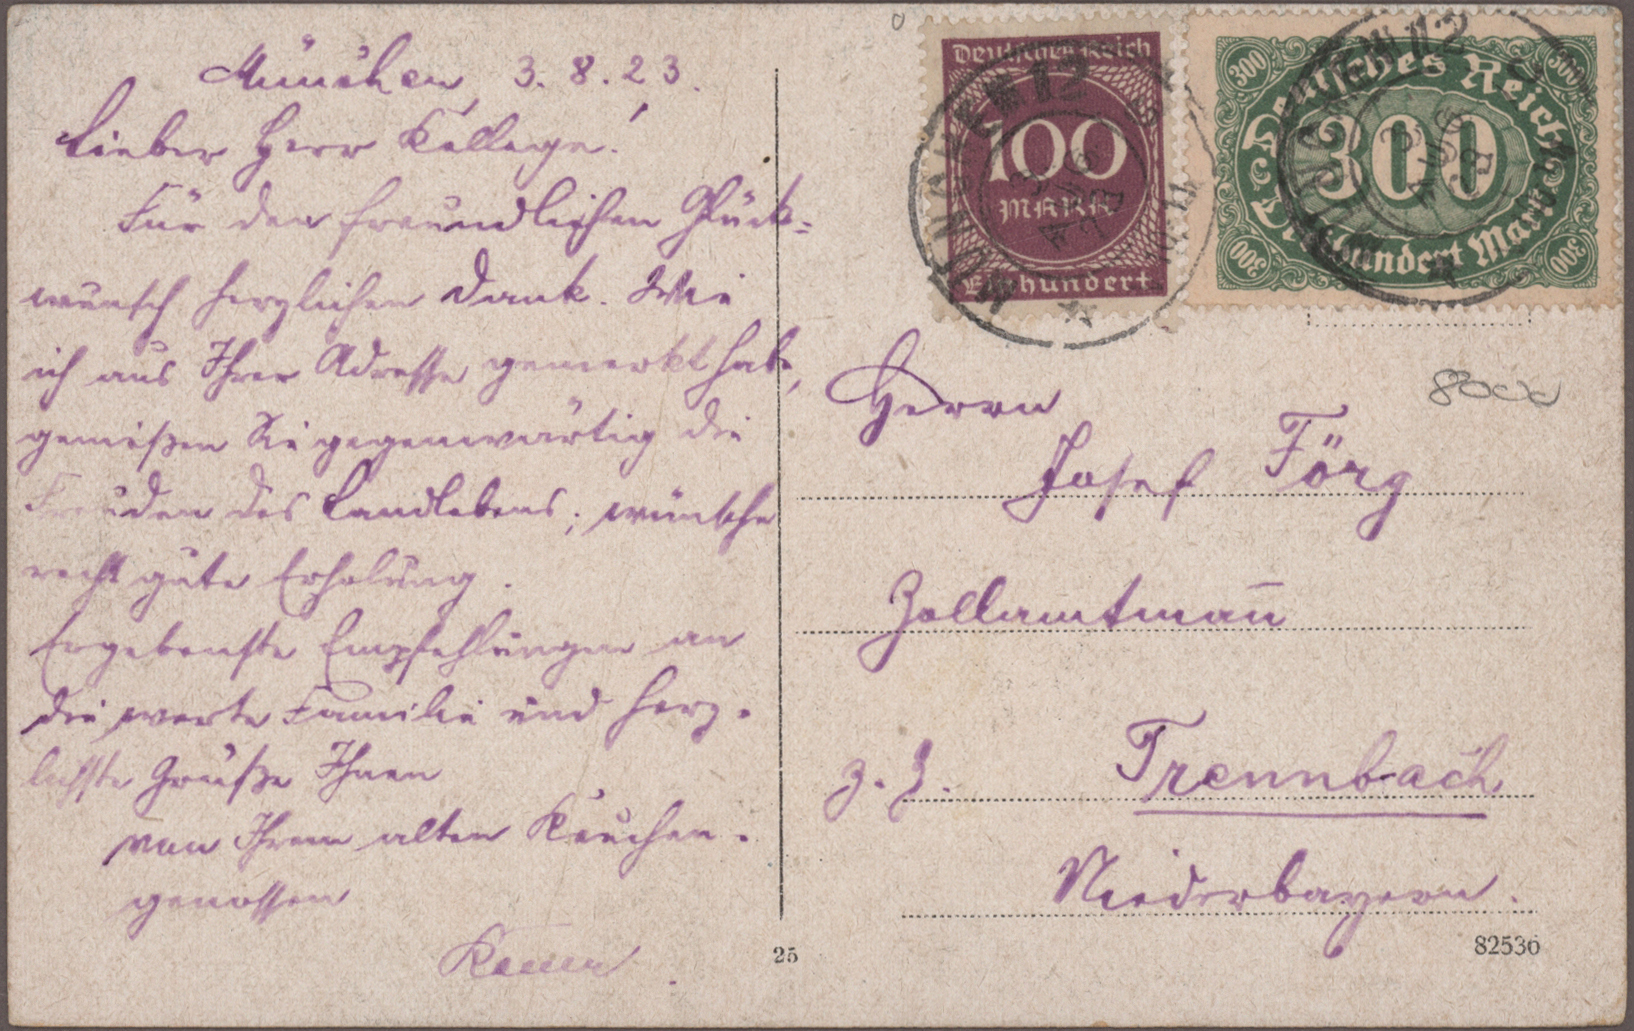 München, 3. 8. 23.
Lieber Herr Kollege!
Für den freundlichen Glück=
wunsch herzlichen Dank. Wie
ich aus Ihrer Adresse gemerkt habe,
genießen Sie gegenwärtig die
Freuden des Landlebens; wünsche
recht gute Erholung.
Ergebenste Empfehlungen an
die werte Familie und herz-
lichste Grüße Ihnen
von Ihrem alten
genossen
25
Deutsches Reich
100
MARK
Einhundert
Deutsches Reich
300
300
300
300
300
Dreihundert Mark
MÜNCHEN 12
3 AUG
MÜNCHEN 12
3 AUG
8000
Herrn
Josef Förg
Zollamtmann
z. Z. Trennbach
Niederbayern.
82536